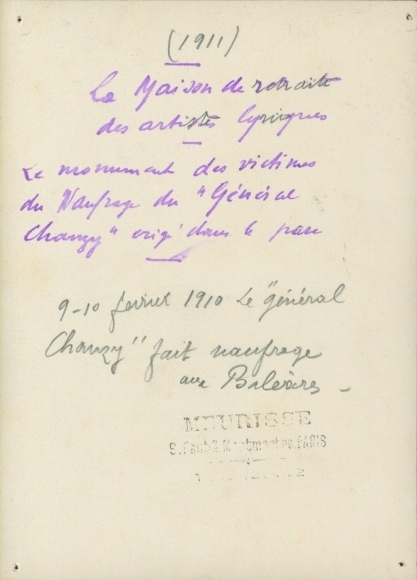 (1911)
La Maison de retraite
des artistes lyriques
Le monument des victimes
du Naufrage du "Général
Chanzy" érigé dans le parc
9-10 février 1910 Le "général
Chanzy" fait naufrage
aux Baléares -
MEURISSE
9, Faubg Montmartre, PARIS